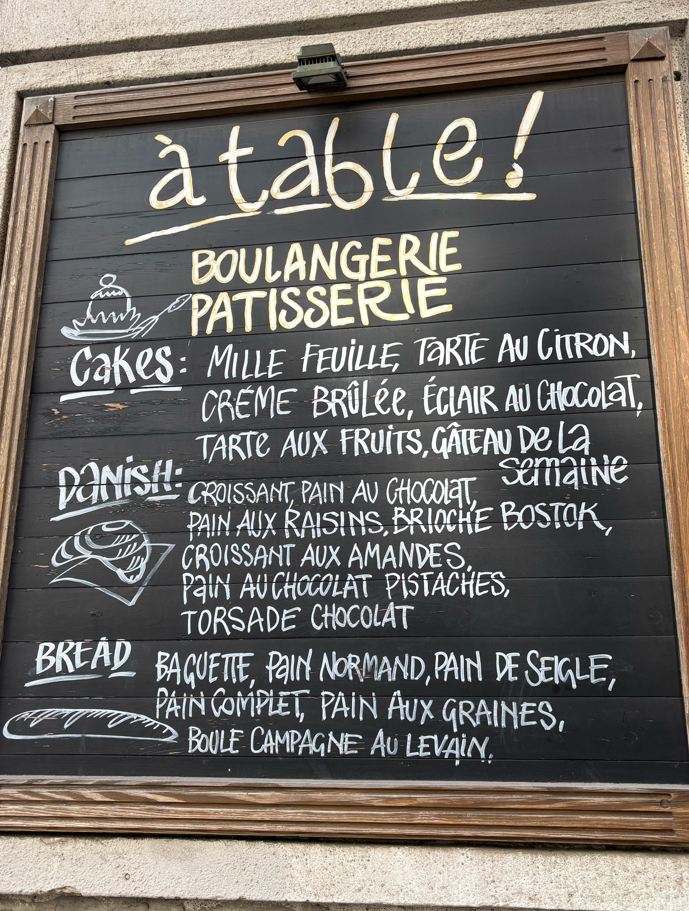 à table!
BOULANGERIE
PATISSERIE
Cakes: MILLE FEUILLE, TARTE AU CITRON,
CRÉME BRÛLÉE, ÉCLAIR AU CHOCOLAT,
TARTE AUX FRUITS, GÂTEAU DE LA
SEMAINE
DANISH: CROISSANT, PAIN AU CHOCOLAT,
PAIN AUX RAISINS, BRIOCHE BOSTOK,
CROISSANT AUX AMANDES,
PAIN AU CHOCOLAT PISTACHES,
TORSADE CHOCOLAT
BREAD BAGUETTE, PAIN NORMAND, PAIN DE SEIGLE,
PAIN COMPLET, PAIN AUX GRAINES,
BOULE CAMPAGNE AU LEVAIN,